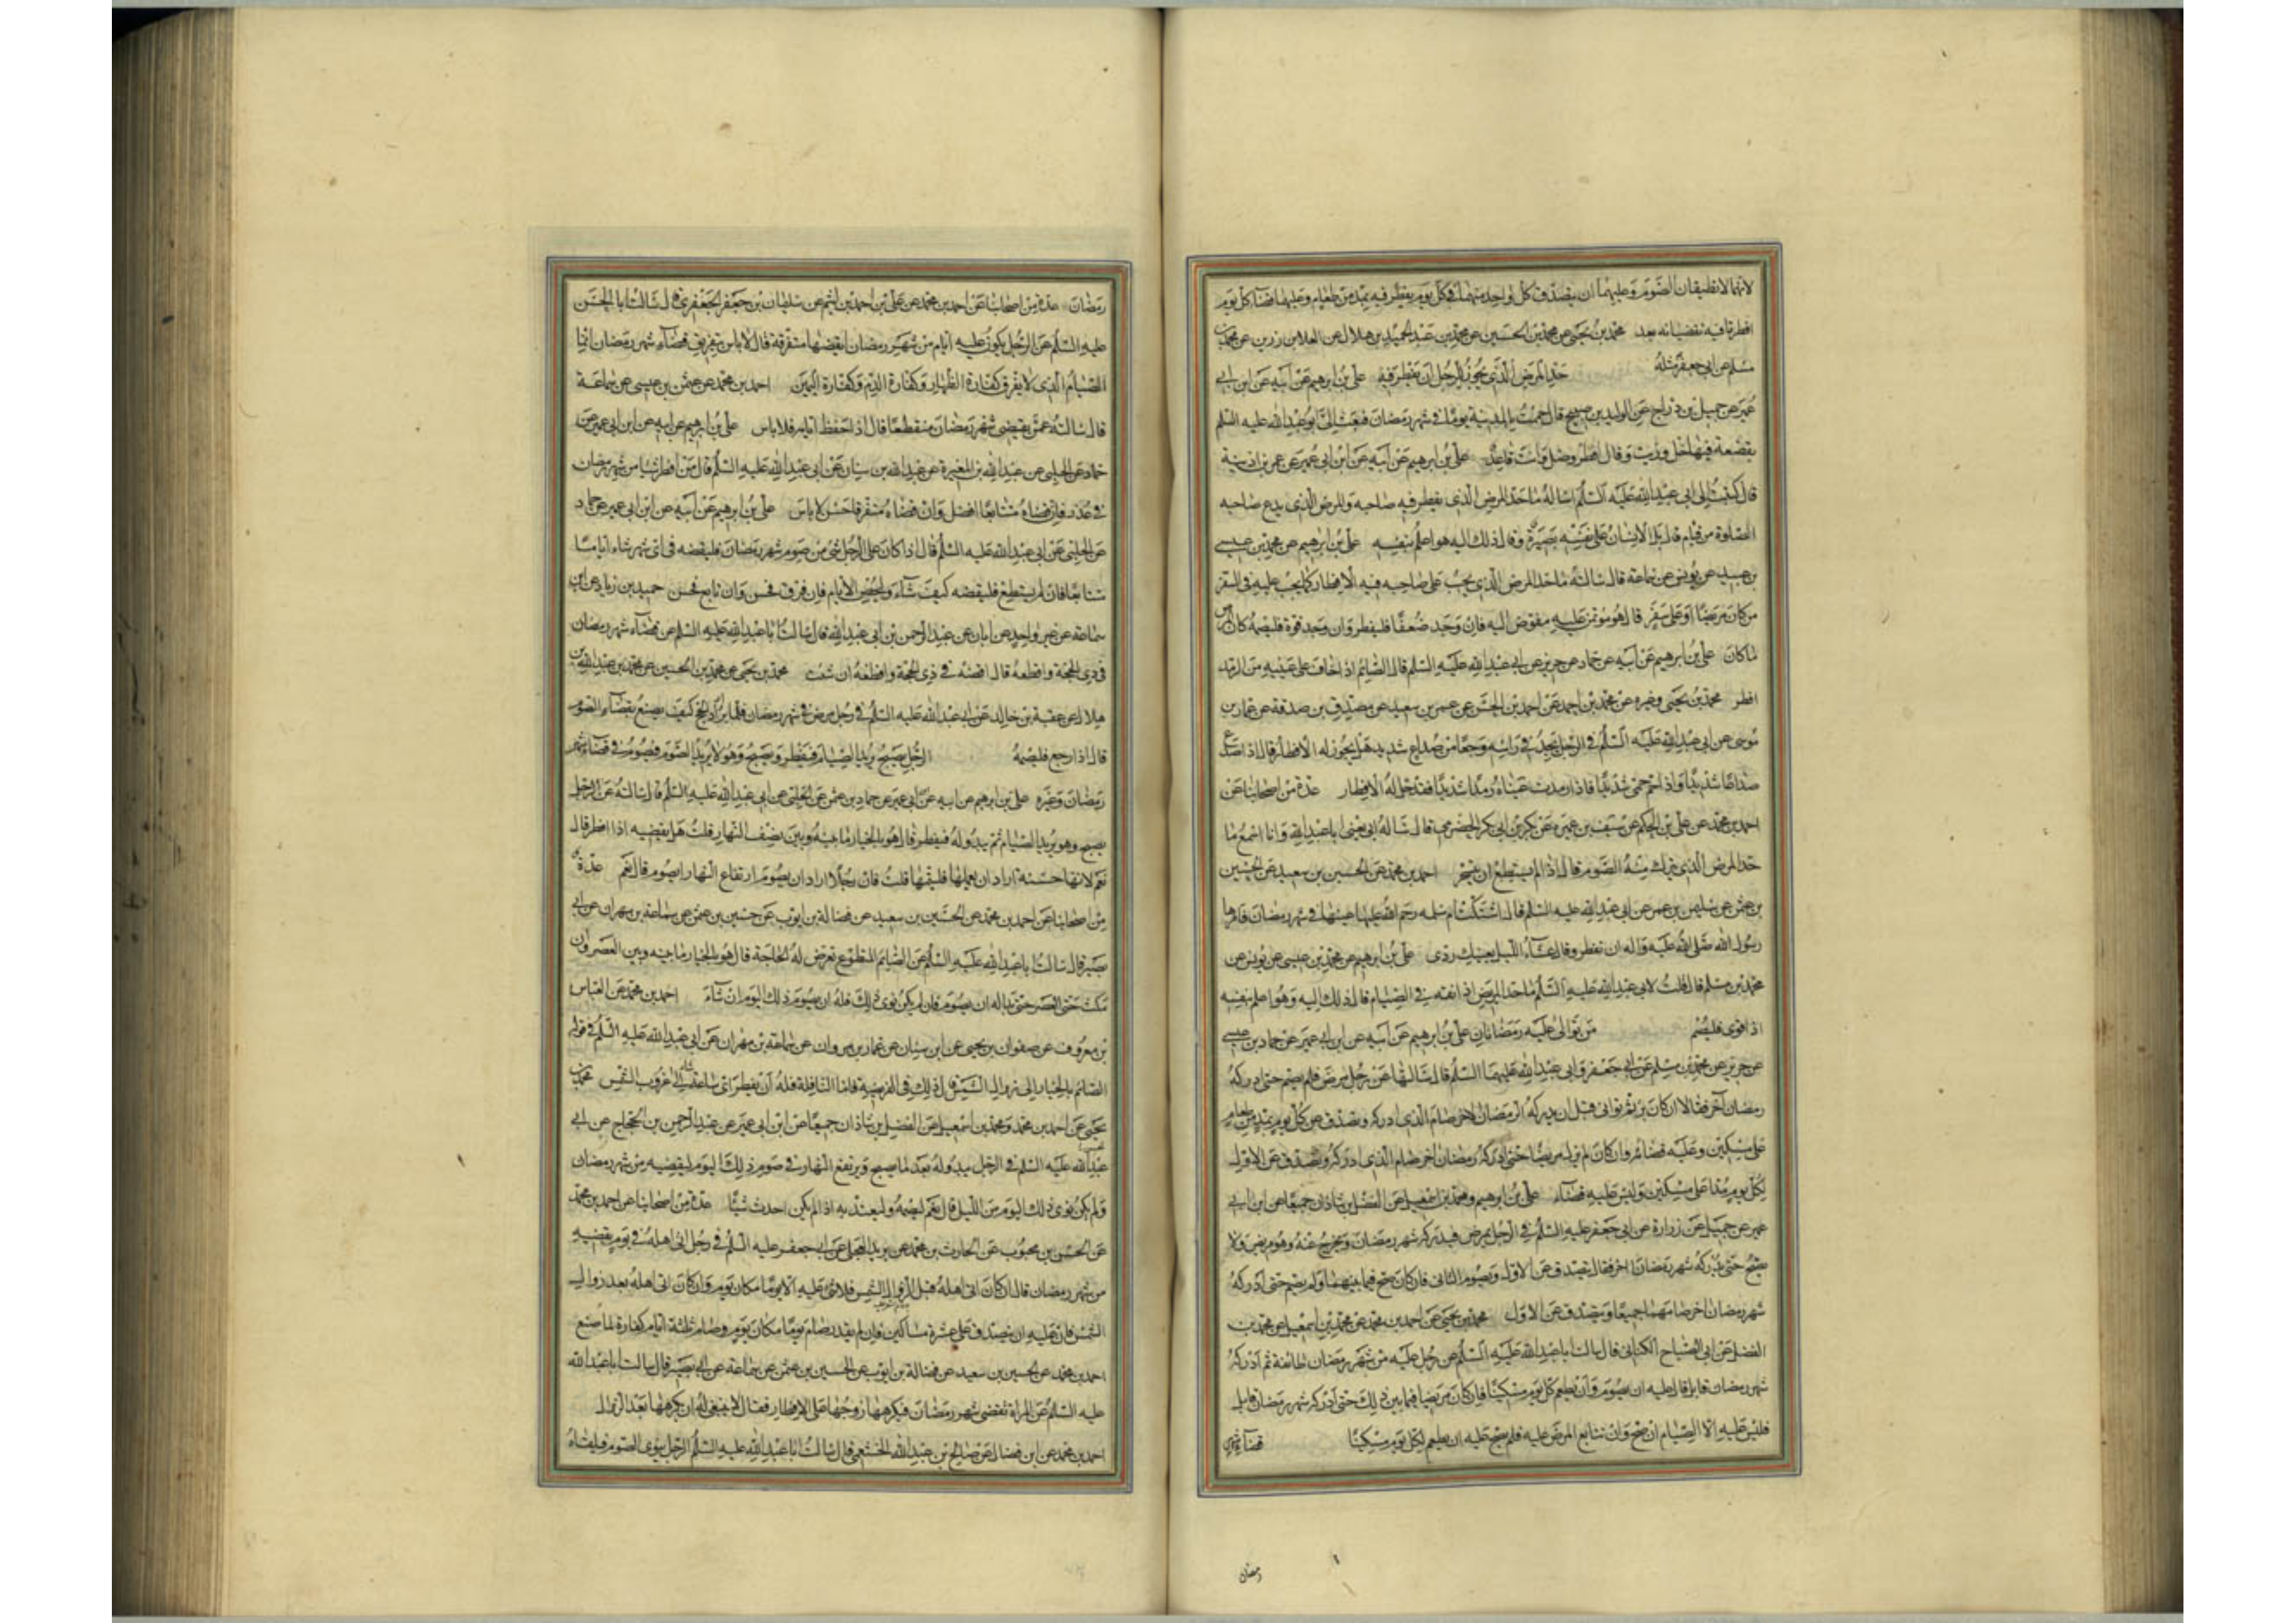 لانهما لا تطيقان الصوم وعليهما ان يتصدق كل واحد منهما في كل يوم يفطر فيه بمد من طعام وعليهما قضاء كل يوم
افطرتا فيه تقضيانه بعد محمد بن يحيى عن محمد بن الحسين عن محمد بن عبد الحميد بن هلال عن العلا بن رزين عن محمد بن
مسلم عن ابي جعفر مثله حد المرض الذي يجوز للرجل ان يفطر فيه علي بن ابرهيم عن ابيه عن ابن ابي
عمير عن جميل بن دراج عن الوليد بن صبيح قال حممت بالمدينة يوما في شهر رمضان فبعث الي ابو عبد الله عليه السلم
بقصعة فيها خل وزيت وقال افطر وصل وانت قاعد علي بن ابرهيم عن ابيه عن ابن ابي عمير عن عمر بن اذينة
قال كتبت الى ابي عبد الله عليه السلم اساله ما حد المرض الذي يفطر فيه صاحبه والمرض الذي يدع صاحبه
الصلوة من قيام قال بل الانسان على نفسه بصيرة وقال ذلك اليه هو اعلم بنفسه علي بن ابرهيم عن محمد بن عيسى
بن عبيد عن يونس عن سماعة قال سالته ما حد المرض الذي يجب على صاحبه فيه الافطار كما يجب عليه في السفر
من كان مريضا او على سفر قال هو مؤتمن عليه مفوض اليه فان وجد ضعفا فليفطر وان وجد قوة فليصمه كان المرض
ما كان علي بن ابرهيم عن ابيه عن حماد عن حريز عن ابي عبد الله عليه السلم قال الصائم اذا خاف على عينيه من الرمد
افطر محمد بن يحيى وغيره عن محمد بن احمد عن احمد بن الحسن عن عمرو بن سعيد عن مصدق بن صدقة عن عمار بن
موسى عن ابي عبد الله عليه السلم في الرجل يجد في راسه وجعا من صداع شديد هل يجوز له الافطار قال اذا صدع
صداعا شديدا واذا حم حمى شديدا فاذا رمدت عيناه رمدا شديدا فقد حل له الافطار عدة من اصحابنا عن
احمد بن محمد عن علي بن الحكم عن سيف بن عميرة عن بكر بن ابي بكر الحضرمي قال ساله ابي يعني ابا عبد الله وانا اسمع ما
حد المرض الذي يترك منه الصوم قال اذا لم يستطع ان يتسحر احمد بن محمد عن الحسين بن سعيد عن الحسين
بن عثمن عن سليمن بن عمر عن ابي عبد الله عليه السلم قال اشتكت ام سلمه رحم الله عليها عينها في شهر رمضان فامرها
رسول الله صلى الله عليه واله ان تفطر وقال عشاء الليل لعينيك ردى علي بن ابرهيم عن محمد بن عيسى عن يونس عن
محمد بن مسلم قال قلت لابي عبد الله عليه السلم ما حد المريض اذا نقه في الصيام قال ذلك اليه وهو اعلم بنفسه
اذا قوى فليصم من توالى عليه رمضانان علي بن ابرهيم عن ابيه عن ابن ابي عمير عن حماد بن عيسى
عن حريز عن محمد بن مسلم عن ابي جعفر وابي عبد الله عليهما السلم قال سالتهما عن رجل مرض فلم يصم حتى ادركه
رمضان آخر فقالا ان كان برئ ثم توانى قبل ان يدركه الرمضان الاخر صام الذي ادركه وتصدق عن كل يوم بمد من طعام
على مسكين وعليه قضاؤه وان كان لم يزل مريضا حتى ادركه رمضان اخر صام الذي ادركه وتصدق عن الاول
لكل يوم مدا على مسكين وليس عليه قضاء علي بن ابرهيم ومحمد بن اسمعيل عن الفضل بن شاذان جميعا عن ابن ابي
عمير عن جميل عن زرارة عن ابي جعفر عليه السلم في الرجل يمرض فيدركه شهر رمضان ويخرج عنه وهو مريض ولا
يصح حتى يدركه شهر رمضان اخر فقال يتصدق عن الاول ويصوم الثاني فان كان صح فيما بينهما ولم يصم حتى ادركه
شهر رمضان اخر صامهما جميعا ويتصدق عن الاول محمد بن يحيى عن احمد بن محمد عن محمد بن اسمعيل عن محمد بن
الفضل عن ابي الصباح الكناني قال سالت ابا عبد الله عليه السلم عن رجل عليه من شهر رمضان طائفة ثم ادركه
شهر رمضان قابل قال عليه ان يصوم وان يطعم كل يوم مسكينا فان كان مريضا فيما بين ذلك حتى ادركه شهر رمضان قابل
فليس عليه الا الصيام ان صح وان تتابع المرض عليه فلم يصح عليه ان يطعم لكل يوم مسكينا قضاء شهر
رمضان
رمضان عدة من اصحابنا عن احمد بن محمد عن علي بن احمد بن اشيم عن سليمان بن جعفر الجعفري قال سالت ابا الحسن
عليه السلم عن الرجل يكون عليه ايام من شهر رمضان ايقضيها متفرقة قال لا باس بتفريق قضاء شهر رمضان انما
الصيام الذي لا يفرق كفارة الظهار وكفارة الدم وكفارة اليمين احمد بن محمد عن عثمن بن عيسى عن سماعة
قال سالته عمن يقضي شهر رمضان منقطعا قال اذا حفظ ايامه فلا باس علي بن ابرهيم عن ابيه عن ابن ابي عمير عن
حماد عن الحلبي عن عبد الله بن المغيرة عن عبد الله بن سنان عن ابي عبد الله عليه السلم قال من افطر شيا من شهر رمضان
في عذر فان قضاه متتابعا افضل وان قضاه متفرقا حسن لا باس علي بن ابرهيم عن ابيه عن ابن ابي عمير عن حماد
عن الحلبي عن ابي عبد الله عليه السلم قال اذا كان على الرجل شئ من صوم شهر رمضان فليقضه في اى شهر شاء اياما
متتابعا فان لم يستطع فليقضه كيف شاء وليحص الايام فان فرق فحسن وان تابع فحسن حميد بن زياد عن ابن
سماعة عن غير واحد عن ابان عن عبد الرحمن بن ابي عبد الله قال سالت ابا عبد الله عليه السلم عن قضاء شهر رمضان
في ذي الحجة واقطعه قال اقضه في ذي الحجة واقطعه ان شئت محمد بن يحيى عن محمد بن الحسين عن محمد بن عبد الله بن
هلال عن عقبة بن خالد عن ابي عبد الله عليه السلم في رجل مرض في شهر رمضان فلما برا اراد الحج كيف يصنع بقضاء الصوم
قال اذا رجع فليصمه الرجل يصبح يريد الصيام فيفطر ويصبح وهو لا يريد الصوم فيصوم في قضاء شهر
رمضان وغيره علي بن ابرهيم عن ابيه عن ابي عمير عن حماد بن عثمن عن الحلبي عن ابي عبد الله عليه السلم قال سالته عن الرجل
يصبح وهو يريد الصيام ثم يبدو له فيفطر قال هو بالخيار ما بينه وبين نصف النهار قلت هل يقضيه اذا افطر قال
نعم لانها حسنة اراد ان يعملها فليتمها قلت فان رجلا اراد ان يصوم ارتفاع النهار ايصوم قال نعم عدة
من اصحابنا عن احمد بن محمد عن الحسين بن سعيد عن فضالة بن ايوب عن حسين بن عثمن عن سماعة بن مهران عن ابي
بصير قال سالت ابا عبد الله عليه السلم عن الصائم المتطوع تعرض له الحاجة قال هو بالخيار ما بينه وبين العصر وان
مكث حتى العصر حتى بدا له ان يصوم فان لم يكن نوى ذلك فله ان يصوم ذلك اليوم ان شاء احمد بن محمد عن العباس
بن معروف عن صفوان بن يحيى عن ابن سنان عن عمار بن مروان عن سماعة بن مهران عن ابي عبد الله عليه السلم في قوله
الصائم بالخيار الى زوال الشمس قال ذلك في الفريضة فاما النافلة فله ان يفطر اى ساعة شاء الى غروب الشمس محمد بن
يحيى عن احمد بن محمد ومحمد بن اسمعيل عن الفضل بن شاذان جميعا عن ابن ابي عمير عن عبد الرحمن بن الحجاج عن ابي
عبد الله عليه السلم في الرجل يبدو له بعد ما يصبح ويرتفع النهار في صوم ذلك اليوم ليقضيه من شهر رمضان
ولم يكن نوى ذلك اليوم من الليل قال نعم ليصمه وليعتد به اذا لم يكن احدث شيئا عدة من اصحابنا عن احمد بن محمد
عن الحسن بن محبوب عن الحارث بن محمد عن بريد العجلي عن ابي جعفر عليه السلم في رجل اتى اهله في يوم يقضيه
من شهر رمضان قال ان كان اتى اهله قبل الزوال الشمس فلا شئ عليه الا يوما مكان يوم وان كان اتى اهله بعد زوال
الشمس فان عليه ان يتصدق على عشرة مساكين فان لم يقدر صام يوما مكان يوم وصام ثلثة ايام كفارة لما صنع
احمد بن محمد عن الحسين بن سعيد عن فضالة بن ايوب عن الحسين بن عثمن عن سماعة عن ابي بصير قال سالت ابا عبد الله
عليه السلم عن المراة تقضي شهر رمضان فيكرهها زوجها على الافطار فقال لا ينبغي له ان يكرهها بعد الزوال
احمد بن محمد عن ابن فضال عن صالح بن عبد الله الخثعمي قال سالت ابا عبد الله عليه السلم الرجل ينوى الصوم فيلقاه